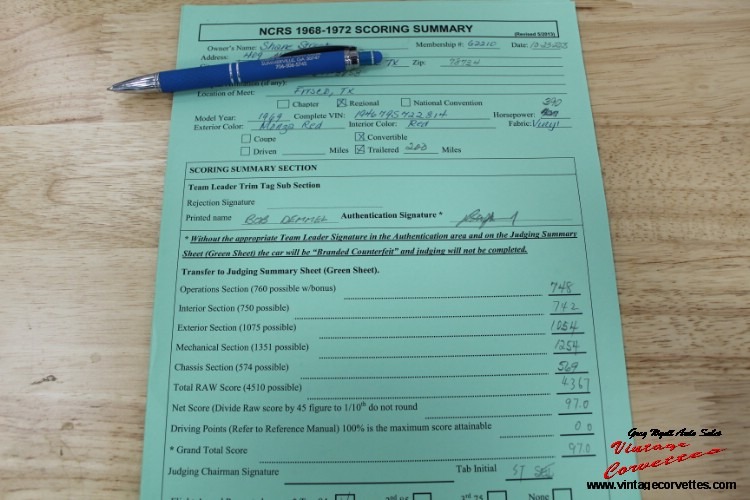 NCRS 1968-1972 SCORING SUMMARY
(Revised 5/2013)
Owner's Name: Membership #: 62210 Date:
Address: 409
TX Zip:
(if any):
Location of Meet: TX
Chapter Regional National Convention
Model Year: 1969 Complete VIN: 194679S722814 Horsepower: 390
Exterior Color: Monza Red Interior Color: Red Fabric: Vinyl
Coupe Convertible
Driven Miles Trailered 200 Miles
SCORING SUMMARY SECTION
Team Leader Trim Tag Sub Section
Rejection Signature
Printed name BOB DEMMEL Authentication Signature *
* Without the appropriate Team Leader Signature in the Authentication area and on the Judging Summary
Sheet (Green Sheet) the car will be "Branded Counterfeit" and judging will not be completed.
Transfer to Judging Summary Sheet (Green Sheet).
Operations Section (760 possible w/bonus) 748
Interior Section (750 possible) 742
Exterior Section (1075 possible) 1054
Mechanical Section (1351 possible) 1254
Chassis Section (574 possible) 569
Total RAW Score (4510 possible) 4367
Net Score (Divide Raw score by 45 figure to 1/10th do not round 97.0
Driving Points (Refer to Reference Manual) 100% is the maximum score attainable 0 0
* Grand Total Score 97.0
Judging Chairman Signature Tab Initial
None
Greg Wyatt Auto Sales
Vintage
Corvettes
www.vintagecorvettes.com